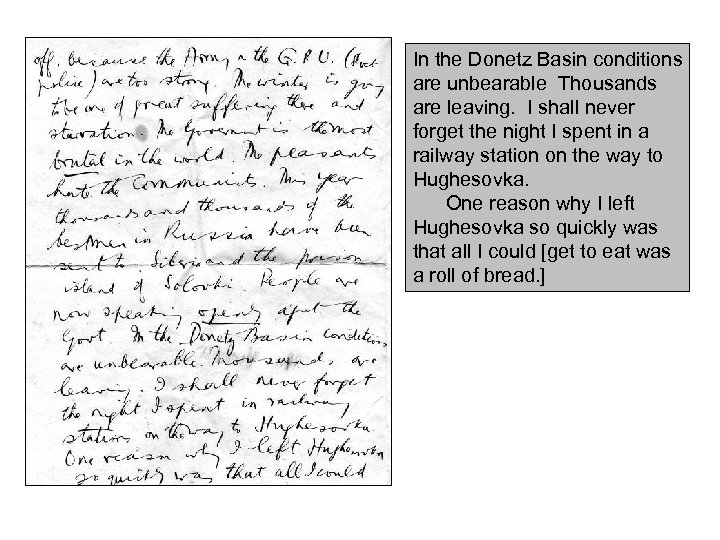 off, because the Army & the G.P.U. (Soviet
police) are too strong. The winter is going
to be one of great suffering there and
starvation. The Government is the most
brutal in the world. The peasants
hate the Communists. This year
thousands and thousands of the
best men in Russia have been
sent to Siberia and the prison
island of Solovki. People are
now speaking openly against the
Govt. In the Donetz Basin conditions
are unbearable. Thousands are
leaving. I shall never forget
the night I spent in railway
station on the way to Hughesovka.
One reason why I left Hughesovka
so quickly was that all I could
In the Donetz Basin conditions
are unbearable Thousands
are leaving. I shall never
forget the night I spent in a
railway station on the way to
Hughesovka.
One reason why I left
Hughesovka so quickly was
that all I could [get to eat was
a roll of bread.]